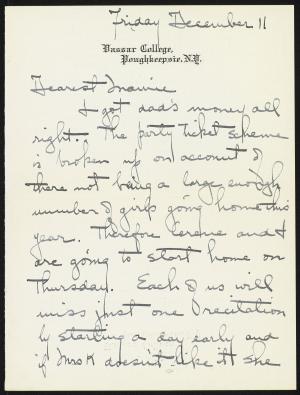 Friday December 11
Vassar College,
Poughkeepsie, N.Y.
Dearest
I got dad's money all
right. The party ticket scheme
is broken up on account of
there not being a large enough
number of girls going home this
year. Therefore and I
are going to start home on
Thursday. Each of us will
miss just one recitation
by starting a day early and
if Mrs K doesn't like it she